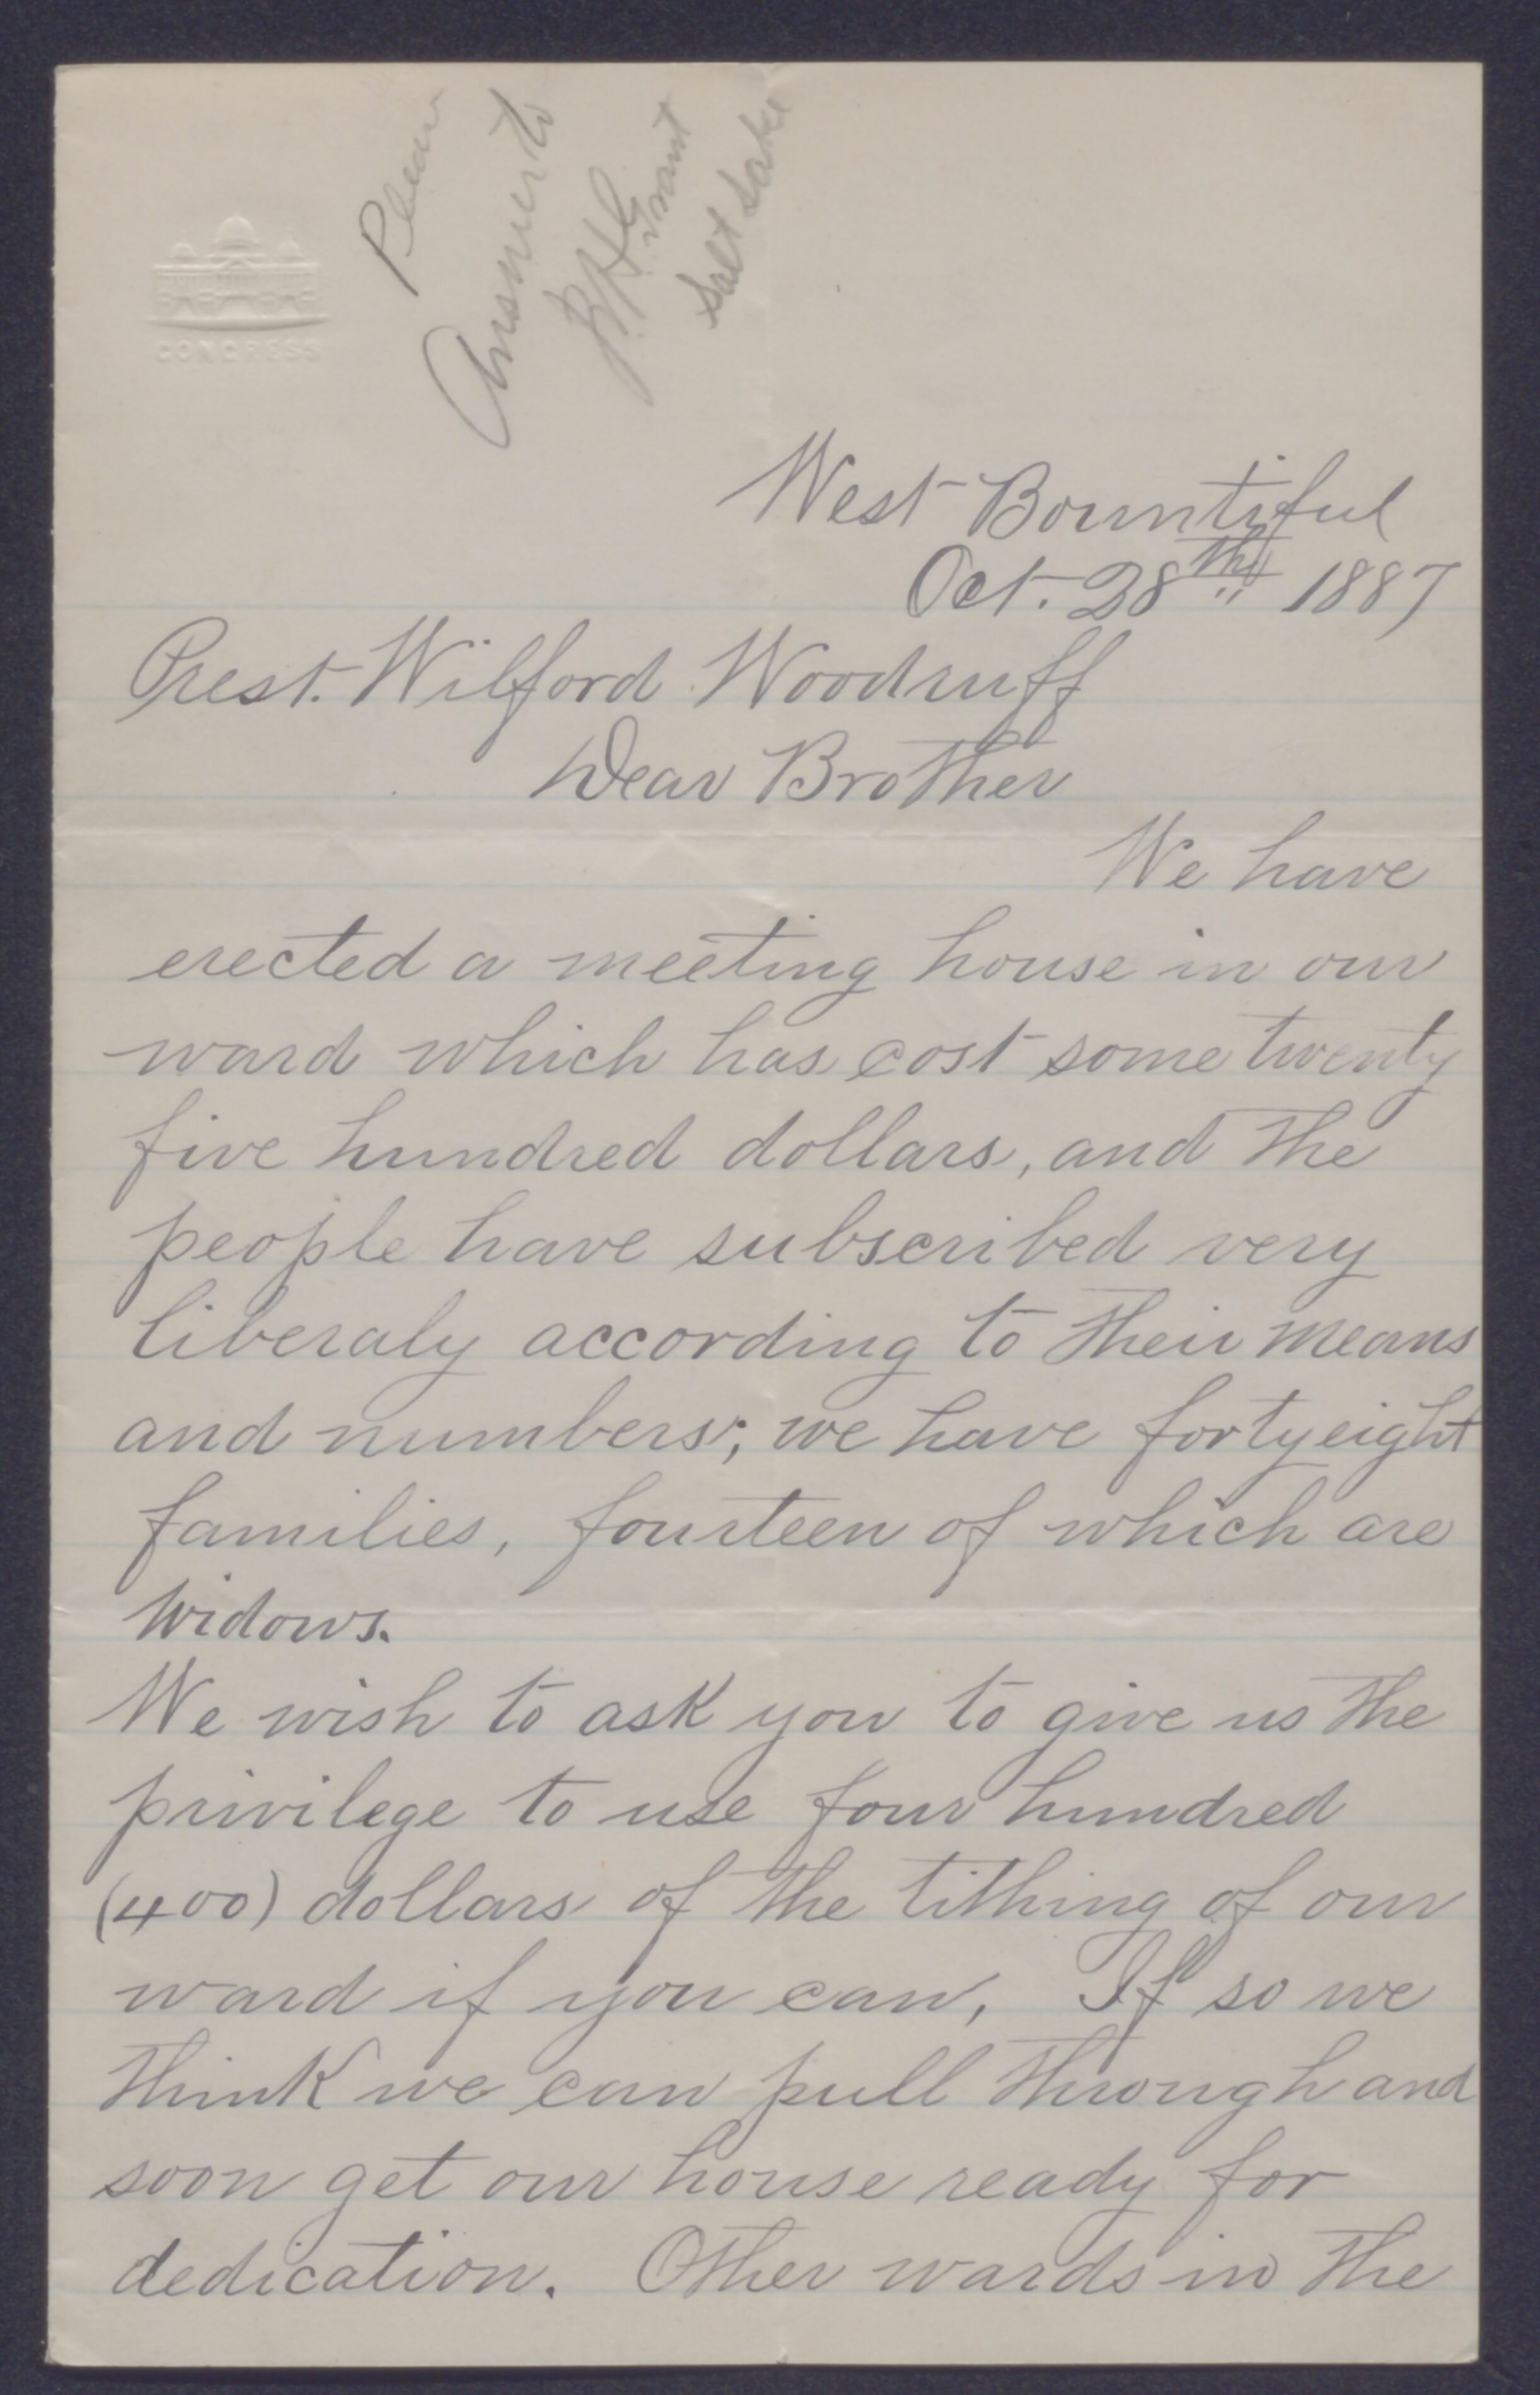 CONGRESS
Please
Answer to
B H Grant
Salt Lake
West Bountiful
Oct. 28th 1887
Prest. Wilford Woodruff
Dear Brother
We have
erected a meeting house in our
ward which has cost some twenty
five hundred dollars, and the
people have subscribed very
liberaly according to their means
and numbers; we have forty eight
families, fourteen of which are
widows.
We wish to ask you to give us the
privilege to use four hundred
(400) dollars of the tithing of our
ward if you can, If so we
think we can pull through and
soon get our house ready for
dedication. Other wards in the